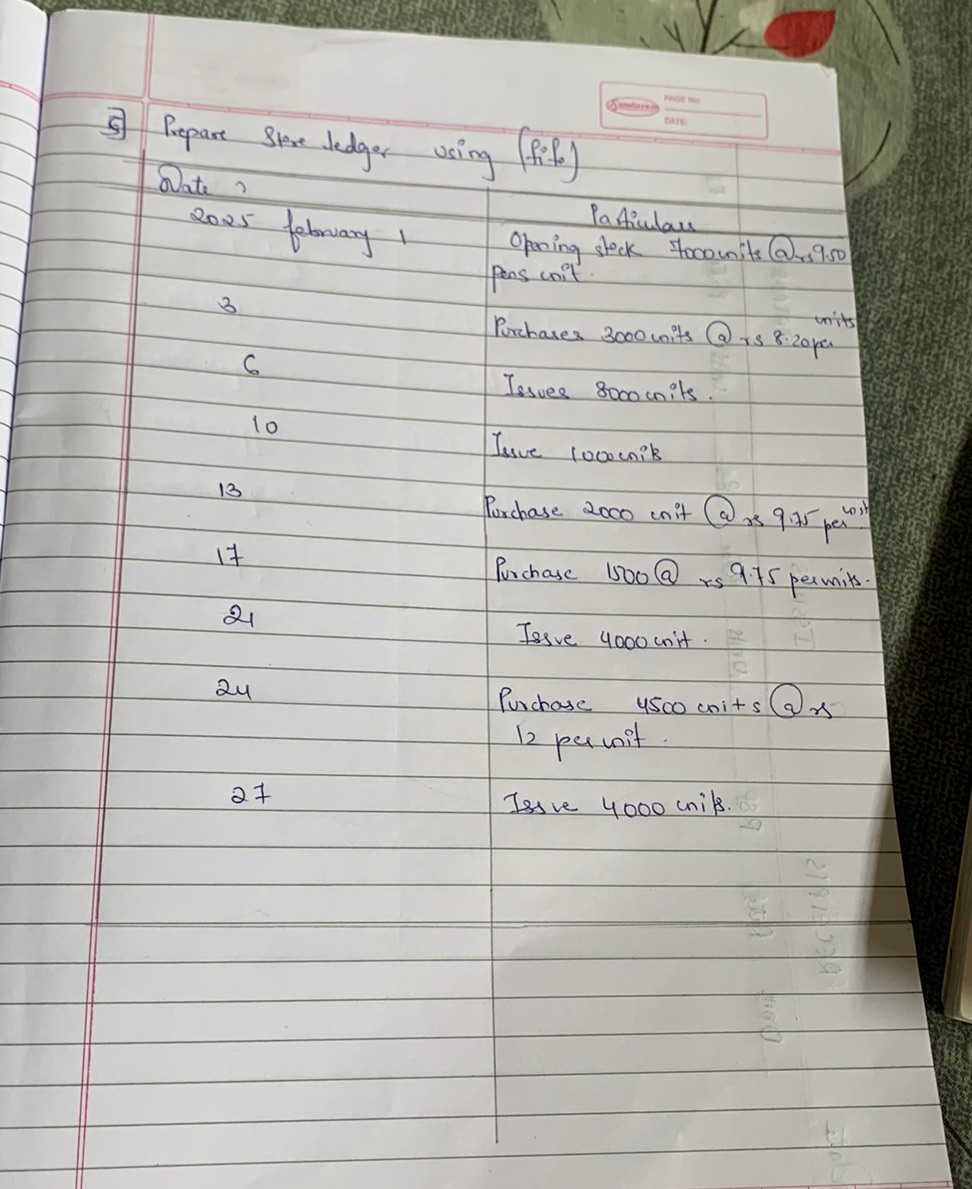 Sundaram
PAGE No.
DATE:
5] Prepare Store ledger using (fifo)
Date :
Particulars
2025 february 1 Opening stock 7000 units @ rs 9.50
per unit.
3 Purchases 3000 units @ rs 8.20 per units
6 Issues 8000 units.
10 Issue 1000 units
13 Purchase 2000 unit @ rs 9.75 per unit
17 Purchase 1500 @ rs 9.75 per units.
21 Issue 4000 unit.
24 Purchase 4500 units @ rs
12 per unit.
27 Issue 4000 units.